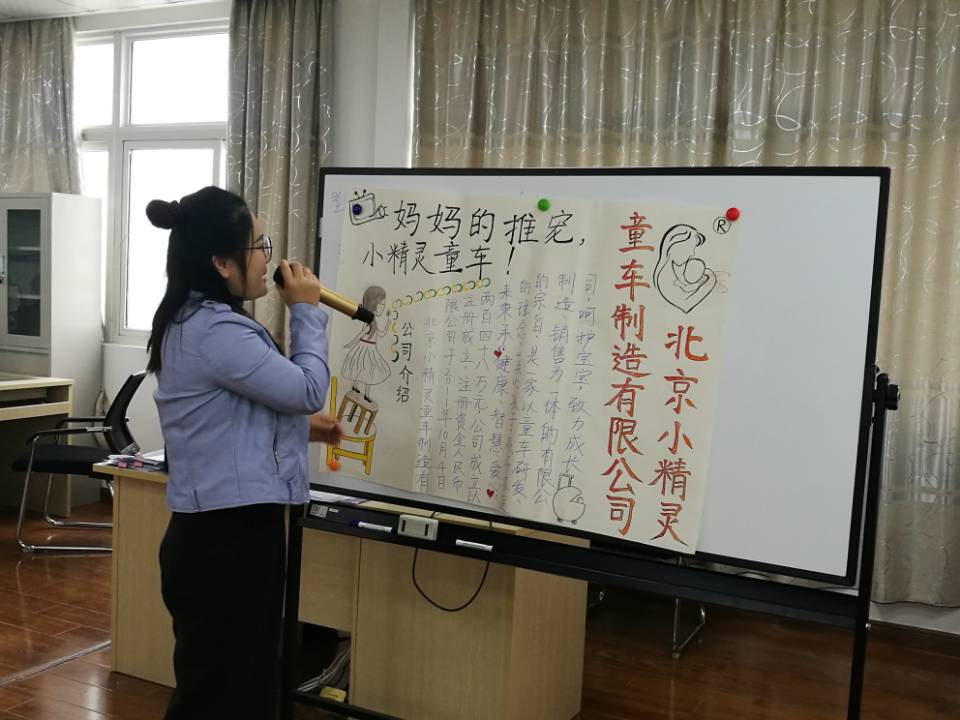 妈妈的推宠，
小精灵童车！
®
北京小精灵
童车制造有限公司
公司介绍
北京小精灵童车制造有
限公司于2011年10月4日
注册成立，注册资金人民币
两百四十八万元，公司成立以
来秉承“健康、智慧、爱
的理念，
的宗旨，是一家以童车研发
制造、销售为一体的有限公
司，呵护宝宝，致力成长